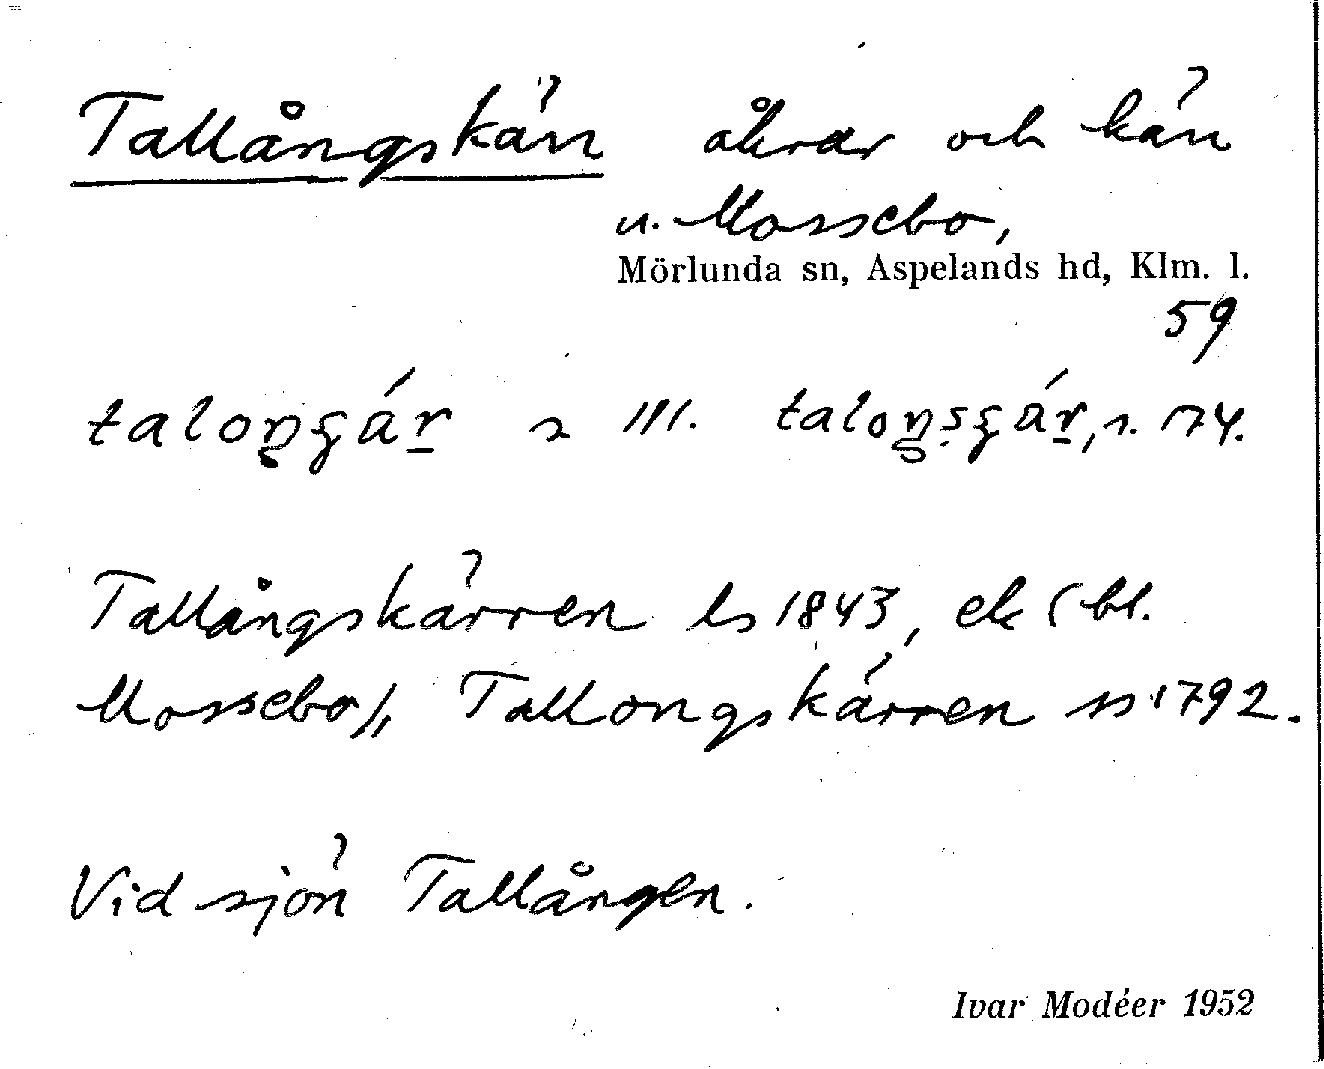 Tallångskärr åkrar och kärr
u. Mossebo,
Mörlunda sn, Aspelands hd, Klm. l.
59
talongár s 111. talonsgár, s. 174.
Tallångskärren ls 1843, ek (bl.
Mossebo/, Tallongskärren ss 1792.
Vid sjön Tallången.
Ivar Modéer 1952